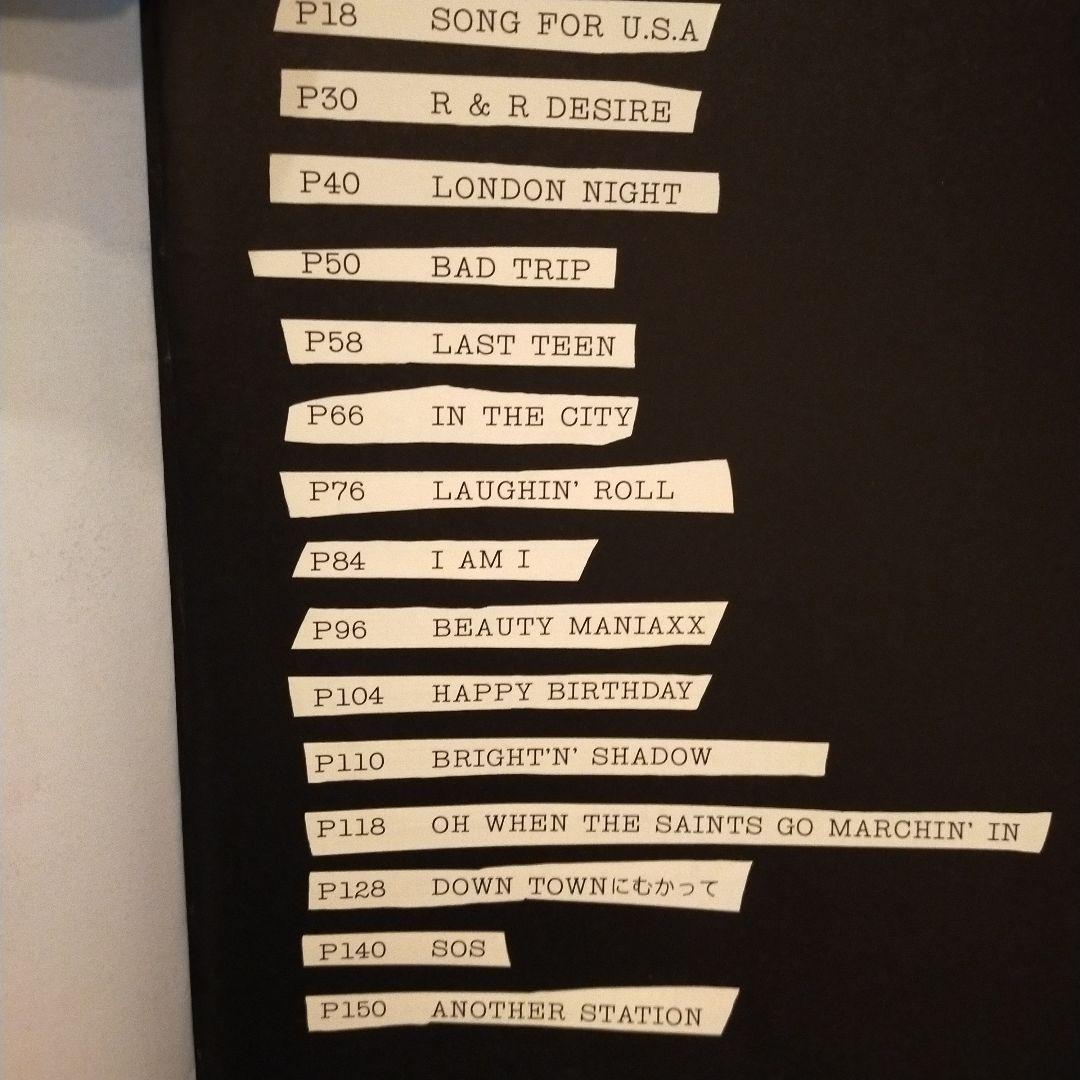 P18 SONG FOR U.S.A
P30 R & R DESIRE
P40 LONDON NIGHT
P50 BAD TRIP
P58 LAST TEEN
P66 IN THE CITY
P76 LAUGHIN' ROLL
P84 I AM I
P96 BEAUTY MANIAXX
P104 HAPPY BIRTHDAY
P110 BRIGHT'N' SHADOW
P118 OH WHEN THE SAINTS GO MARCHIN' IN
P128 DOWN TOWNにむかって
P140 SOS
P150 ANOTHER STATION